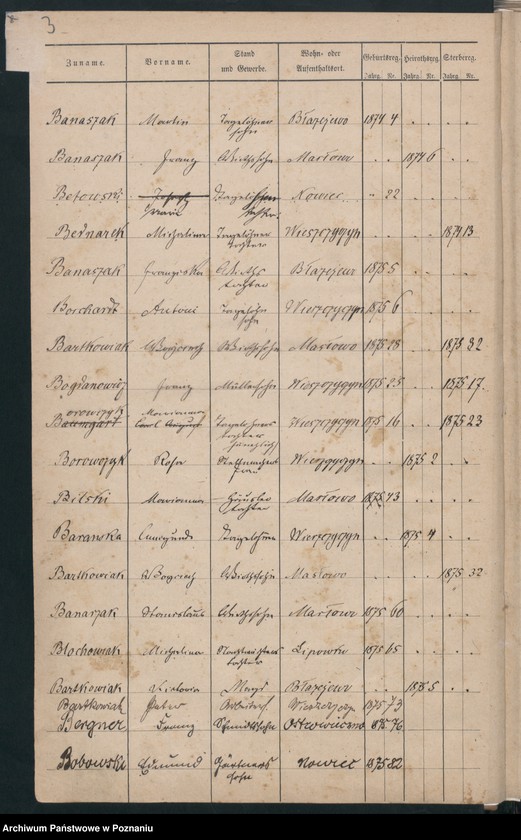 3
Zuname. Vorname. Stand und Gewerbe. Wohn- oder Aufenthaltsort. Geburtsreg. Heirathsreg. Sterbereg.
Jahrg. Nr. Jahrg. Nr. Jahrg. Nr.
Banaszak Martin Tagelöhner sohn Błażejewo 1874 4
Banaszak Franz Wirthssohn Masłowo 1874 6
Betowski Joseph Nowiec " 22
Bednarek Michalina Tagelöhner tochter Wieszczyczyn 1874 13
Banaszak Franziska Wirths tochter Błażejewo 1875 5
Borchardt Antoni Tagelöhn sohn Wieszczyczyn 1875 6
Bartkowiak Woyciech Wirthssohn Masłowo 1875 28 1875 32
Bogdanowicz Franz Müllersohn Wieszczyczyn 1875 25 1875 17
Borowczyk Marianna
Baumgart Carl August Tagelöhners tochter Wieszczyczyn 1875 16 1875 23
Borowczyk Rosa Stellmachers frau Wieszczyczyn 1875 2
Bilski Marianna Häusler tochter Masłowo 1875 43
Baranska Cunegunde Wieszczyczyn 1875 4
Bartkowiak Woyciech Wirthssohn Masłowo 1875 32
Banaszak Stanislaus Wirthssohn Masłowo 1875 60
Błochowiak Michalina tochter Lipowka 1875 65
Bartkowiak Victoria Magd Błażejewo 1875 5
Bartkowiak Peter Wieszczyczyn 1875 73
Bergner Franz Schmidtssohn Ostrowieczno 1875 76
Bobowski Edmund Gärtners sohn Nowiec 1875 82
Archiwum Państwowe w Poznaniu